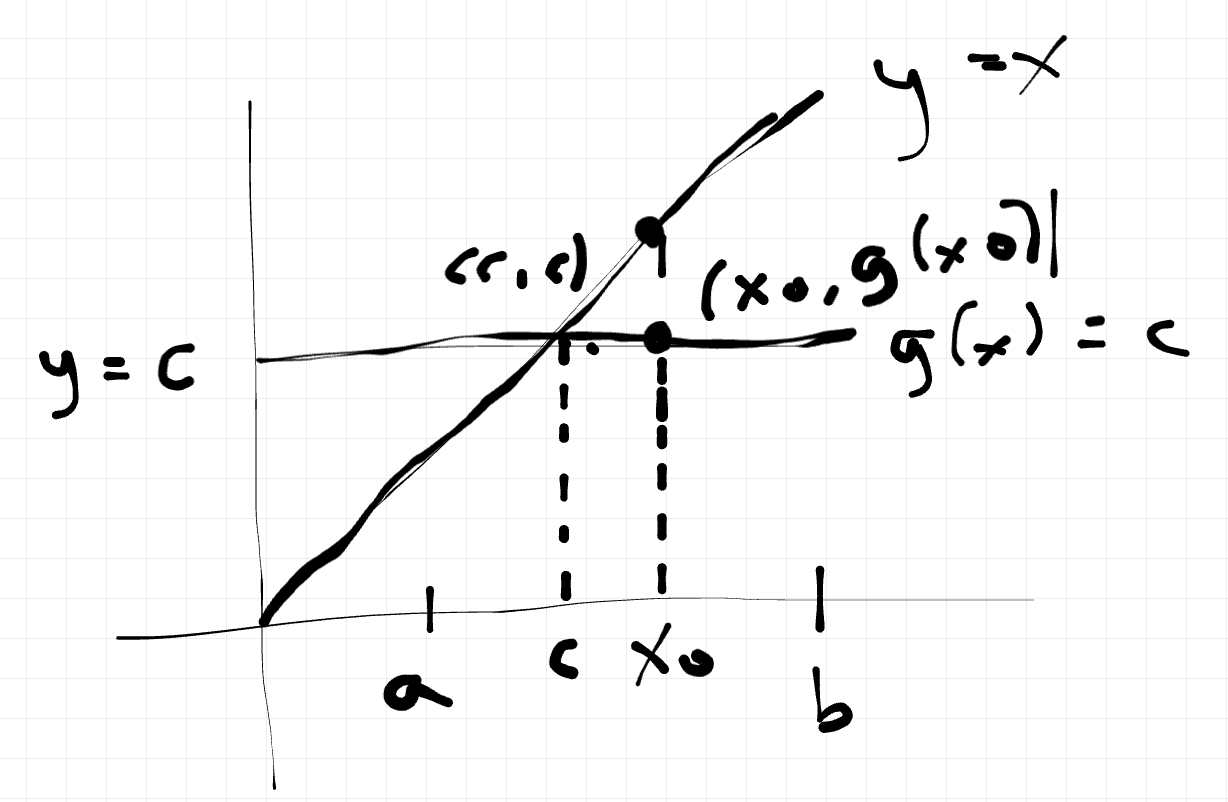 y = x
(c, c)
(x0, g(x0)|
y = c
g(x) = c
a
c
x0
b